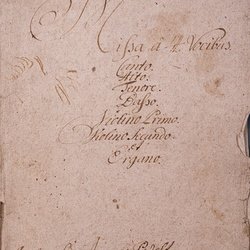 Missa â 4. Vocibus
Canto.
Alto.
Tenore.
Basso.
Violino Primo.
Violino Secundo.
et
Organo.